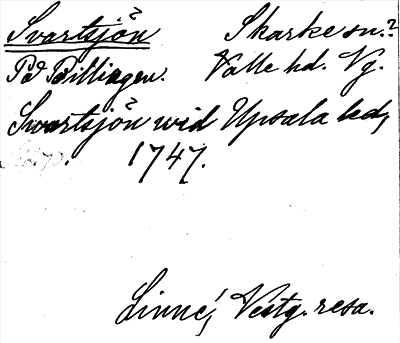 Svartsjön Skarke sn.?
På Billingen. Valle hd. Vg.
Swartsjön wid Upsala
1747.
Linné, Vestg. resa.